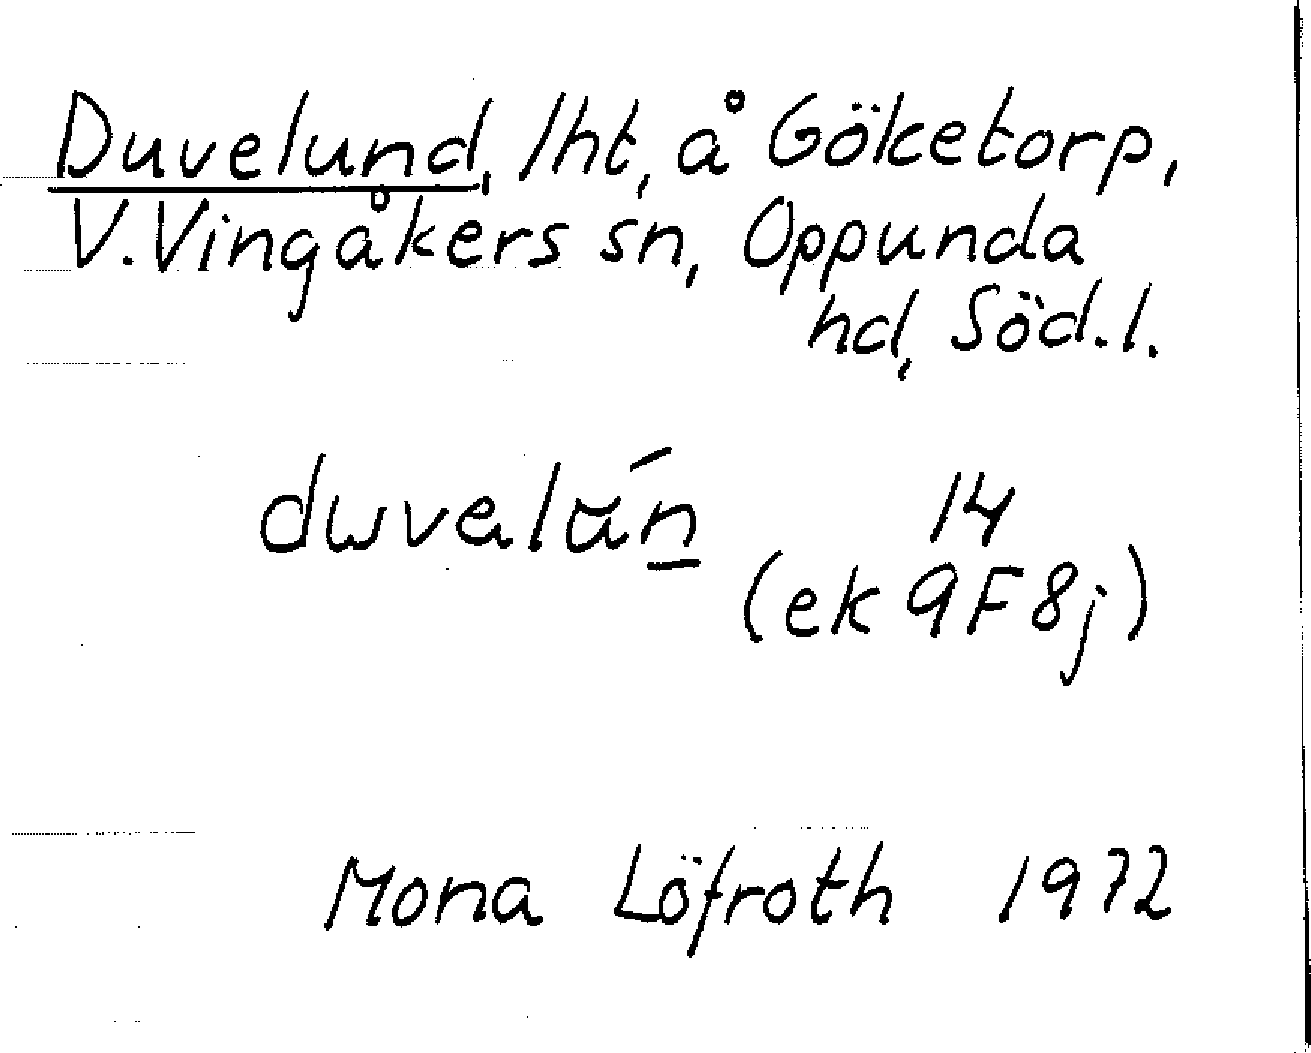 Duvelund, lht, å Göketorp,
V. Vingåkers sn, Oppunda
hd, Söd.l.
14
(ek 9F8j)
Mona Löfroth 1972